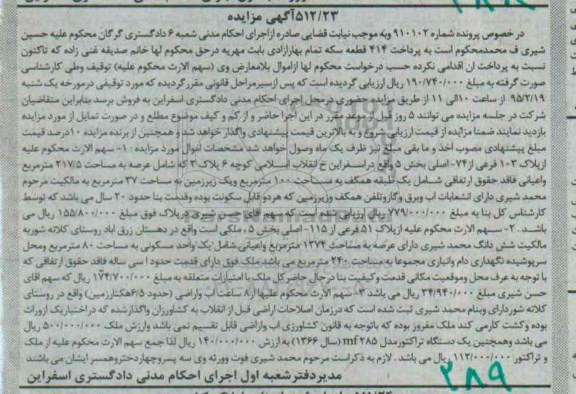 ۵۱۲/۲۳آگهی مزایده
در خصوص پرونده شماره ۹۱۰۱۰۲ وبه موجب نیابت قضایی صادره ازاجرای احکام مدنی شعبه ۶ دادگستری گرگان محکوم علیه حسین
شیری ف محمدمحکوم است به پرداخت ۴۱۴ قطعه سکه تمام بهارازادی بابت مهریه درحق محکوم لها خانم صدیقه غنی زاده که تاکنون
نسبت به پرداخت ان اقدامی نکرده حسب درخواست محکوم لها ازاموال بلامعارض وی (سهم الارث محکوم علیه) توقیف وطی کارشناسی
صورت گرفته به مبلغ ۱۹۰/۷۴۰/۰۰۰ ریال ارزیابی گردیده است که پس ازسیرمراحل قانونی مقررگردیده که مورد توقیفی درمورخه یک شنبه
۹۵/۲/۱۹ از ساعت ۱۰الی ۱۱ از طریق مزایده حضوری در محل اجرای احکام مدنی دادگستری اسفراین به فروش برسد بنابراین متقاضیان
شرکت در جلسه مزایده می توانند ۵ روز قبل از موعد مقرر در این اجرا حاضر و از کم و کیف موضوع مطلع و در صورت تمایل از مورد مزایده
بازدید نمایند ضمنا مزایده از قیمت ارزیابی شروع و به بالاترین قیمت پیشنهادی واگذار خواهد شد و همچنین از برنده مزایده ۱۰درصد قیمت
مبلغ پیشنهادی مصوب اخذ و ما بقی مبلغ نیز ظرف یک ماه وصول خواهد شد مشخصات اموال مورد مزایده : ۱- سهم الارث محکوم علیه
ازپلاک ۱۰۳ فرعی از۷۴-اصلی بخش ۵ واقع دراسفراین خ انقلاب کوچه ۶ پلاک ۳ که شامل عرصه به مساحت ۲۱۷/۵ مترمربع
واعیانی فاقد حقوق ارتفاقی شامل یک طبقه همکف به مساحت ۱۰۰ مترمربع ویک زیرزمین به مساحت ۳۷ مترمربع به مالکیت مرحوم
محمد شیری دارای انشعابات اب وبرق وگازوتلفن همکف وزیرزمین که هردو قابل سکونت بوده وقدمت بنا حدود ۲۰ سال می باشد که توسط
کارشناس کل بنا به مبلغ ۷۷۹/۰۰۰/۰۰۰ ریال ارزیابی شده است که سهم اقای حسن شیری در پلاک فوق مبلغ ۱۵۵/۸۰۰/۰۰۰ ریال می
باشد. ۲- سهم الارث محکوم علیه ازپلاک ۵۱ فرعی از ۱۱۵- اصلی بخش ۵ ملکی است واقع در دهستان زرق اباد روستای کلاته شوربه
مالکیت شش دانگ محمد شیری دارای عرصه به مساحت ۱۳۷۴ مترمربع واعیانی شامل یک واحد مسکونی به مساحت ۸۰ مترمربع ومحل
سرپوشیده نگهداری دام وانباری مجموعا به مساحت ۲۴۰ مترمربع می باشد ملک فوق دارای قدمت حدود ا سی ساله فاقد حقوق ارتفاقی که
با توجه به عرف محل وموقعیت مکانی قدمت وکیفیت بنا درحال حاضر کل ملک با امتیازات متعلقه به مبلغ ۱۷۴/۷۰۰/۰۰۰ ریال که سهم اقای
حسن شیری مبلغ ۳۴/۹۴۰/۰۰۰ ریال می باشد ۳- سهم الارث محکوم علیهااز۸ ساعت اب واراضی (حدود ۶/۵هکتارزمین) واقع در روستای
کلاته شوردارای وبنام محمد شیری ثبت شده است که درزمان اصلاحات ارضی قبل از انقلاب به کشاورزان واگذارشده که دراختیاریک ازوراث
بوده وکشت کارمی کند ملک مفروز بوده که باتوجه به قانون کشاورزی اب واراضی قابل تقسیم نمی باشد وارزش ملک ۵۰۰/۰۰۰/۰۰۰ ریال
می باشد وهمچنین یک دستگاه تراکتورمدل mf ۲۸۵ (سال ۱۳۶۶) به ارزش ۱۴۰/۰۰۰/۰۰۰ ریال لذا جمع سهم الارث محکوم علیه از ملک
و تراکتور ۱۱۲/۰۰۰/۰۰۰ ریال می باشد . لازم به ذکراست مرحوم محمد شیری فوت وورثه وی سه پسروچهاردختروهمسر ایشان می باشند
مدیردفترشعبه اول اجرای احکام مدنی دادگستری اسفراین
۲۸۹